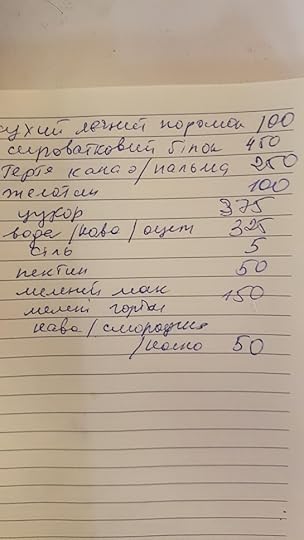 сухий яєчний порошок 100
сироватковий білок 450
терте какао/пальма 250
желатин 100
цукор 375
вода/кава/оцет 325
сіль 5
пектин 50
мелений мак 150
мелені горіхи
кава/смородина
/кокос 50